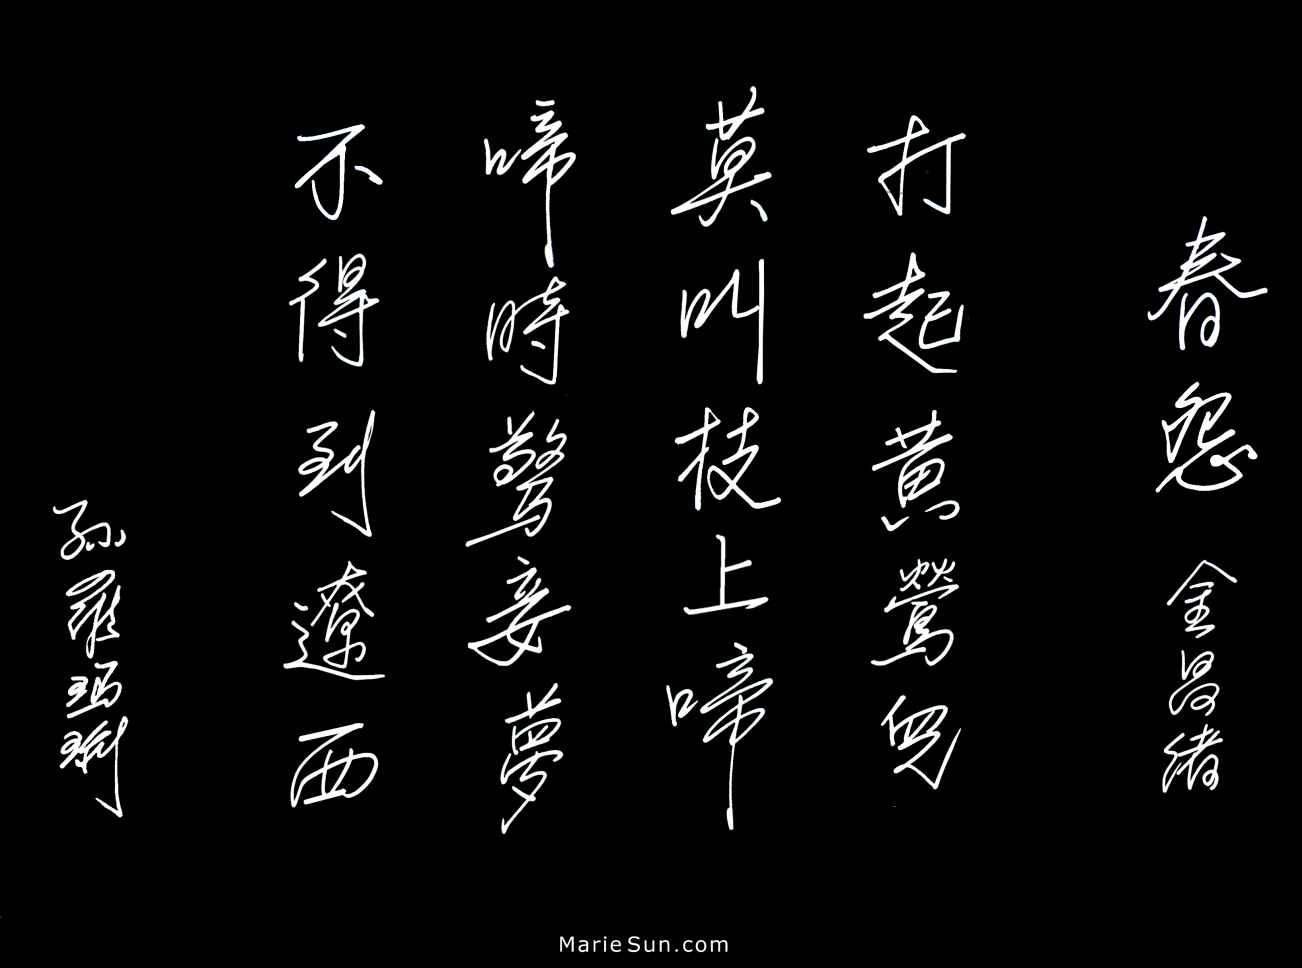 春怨 金昌緒
打起黃鶯兒
莫叫枝上啼
啼時驚妾夢
不得到遼西
孫羅瑪琍
MarieSun.com